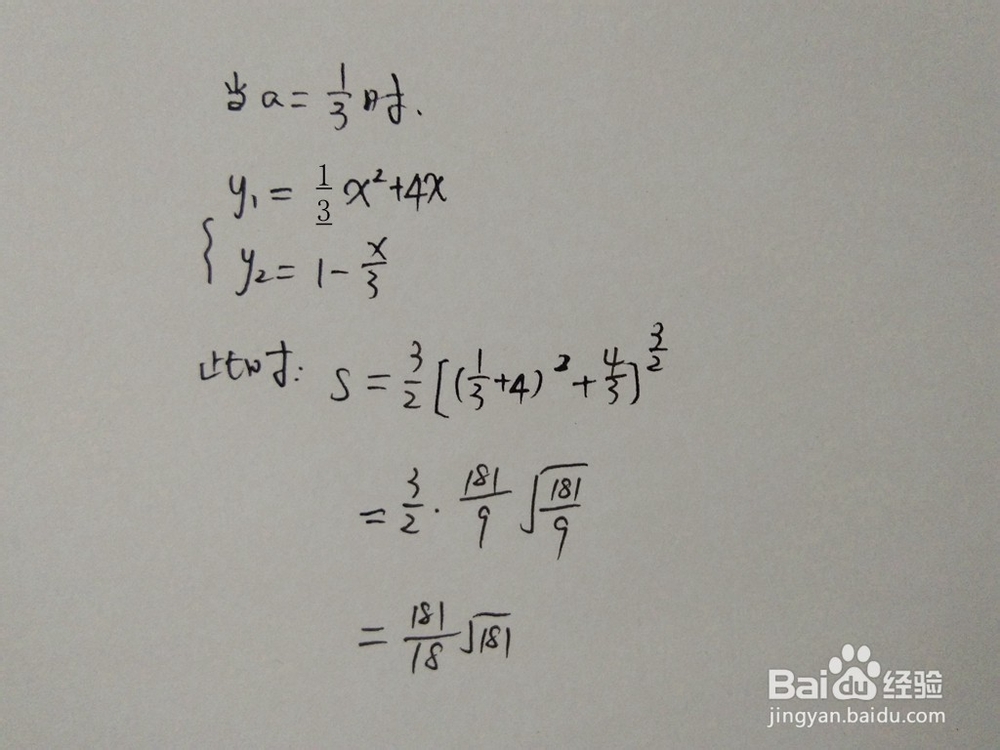 当a=1/3时.
y₁=1/3x²+4x
{y₂=1-x/3
此时:S=3/2[(1/3+4)²+4/3]^(3/2)
=3/2·181/9√(181/9)
=181/18√181
Baidu经验
jingyan.baidu.com